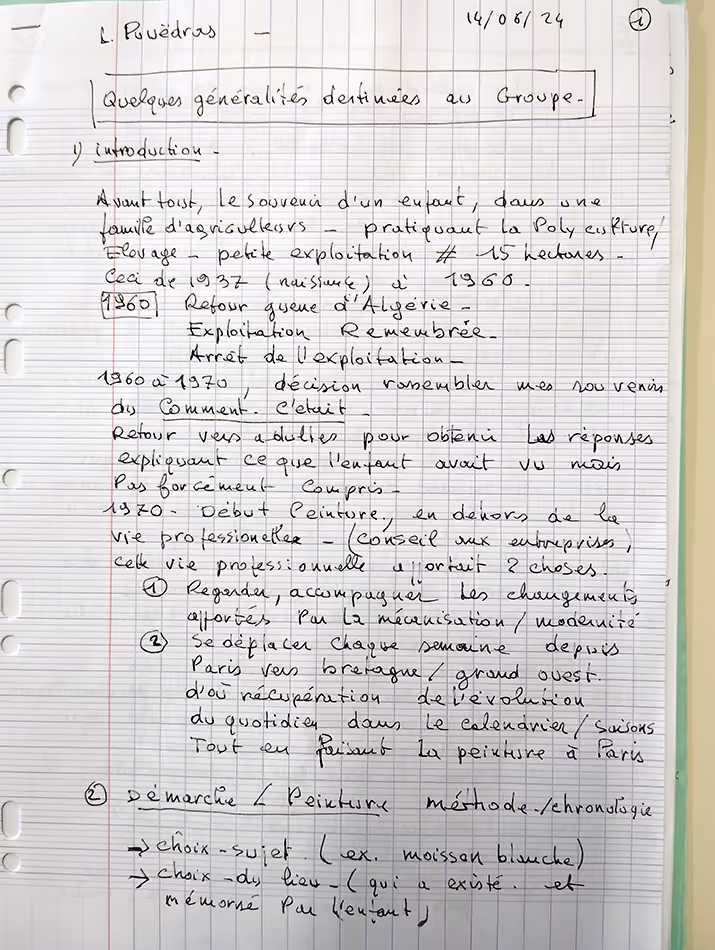 L. Pouëdras — 14/06/24 1
Quelques généralités destinées au Groupe.
1) introduction -
Avant tout, le souvenir d'un enfant, dans une
famille d'agriculteurs - pratiquant la Polyculture/
Elevage - petite exploitation # 15 hectares -
Ceci de 1937 (naissance) à 1960.
1960 Retour guerre d'Algérie -
Exploitation Remembrée -
Arrêt de l'exploitation -
1960 à 1970, décision rassembler mes souvenirs
du Comment. C'était -
Retour vers adultes pour obtenir les réponses
expliquant ce que l'enfant avait vu mais
Pas forcément compris -
1970 - Début Peinture, en dehors de la
vie professionelle - (Conseil aux entreprises)
cette vie professionnelle apportait 2 choses.
1 Regarder, accompagner les changements
apportés Par la mécanisation / modernité
2 Se déplacer chaque semaine depuis
Paris vers bretagne / grand ouest.
d'où récupération de l'évolution
du quotidien dans le calendrier / saisons
Tout en faisant la peinture à Paris
2 Démarche / Peinture méthode / chronologie
→ choix - sujet. (ex. moisson blanche)
→ choix - du lieu - (qui a existé. et
mémorisé Par l'enfant)